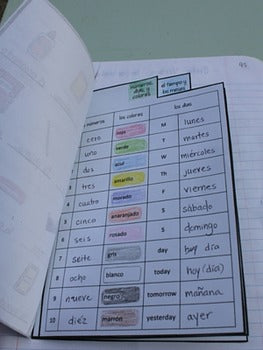 números,
días, y
colores
el tiempo y
los meses
números los colores los días
cero rojo M lunes
uno verde T martes
dos azul W miércoles
3 tres amarillo Th jueves
4 cuatro morado F viernes
5 cinco anaranjado S sábado
6 seis rosado S domingo
7 seite gris day día
8 ocho blanco today hoy (día)
9 nueve negro tomorrow mañana
10 diez marrón yesterday ayer